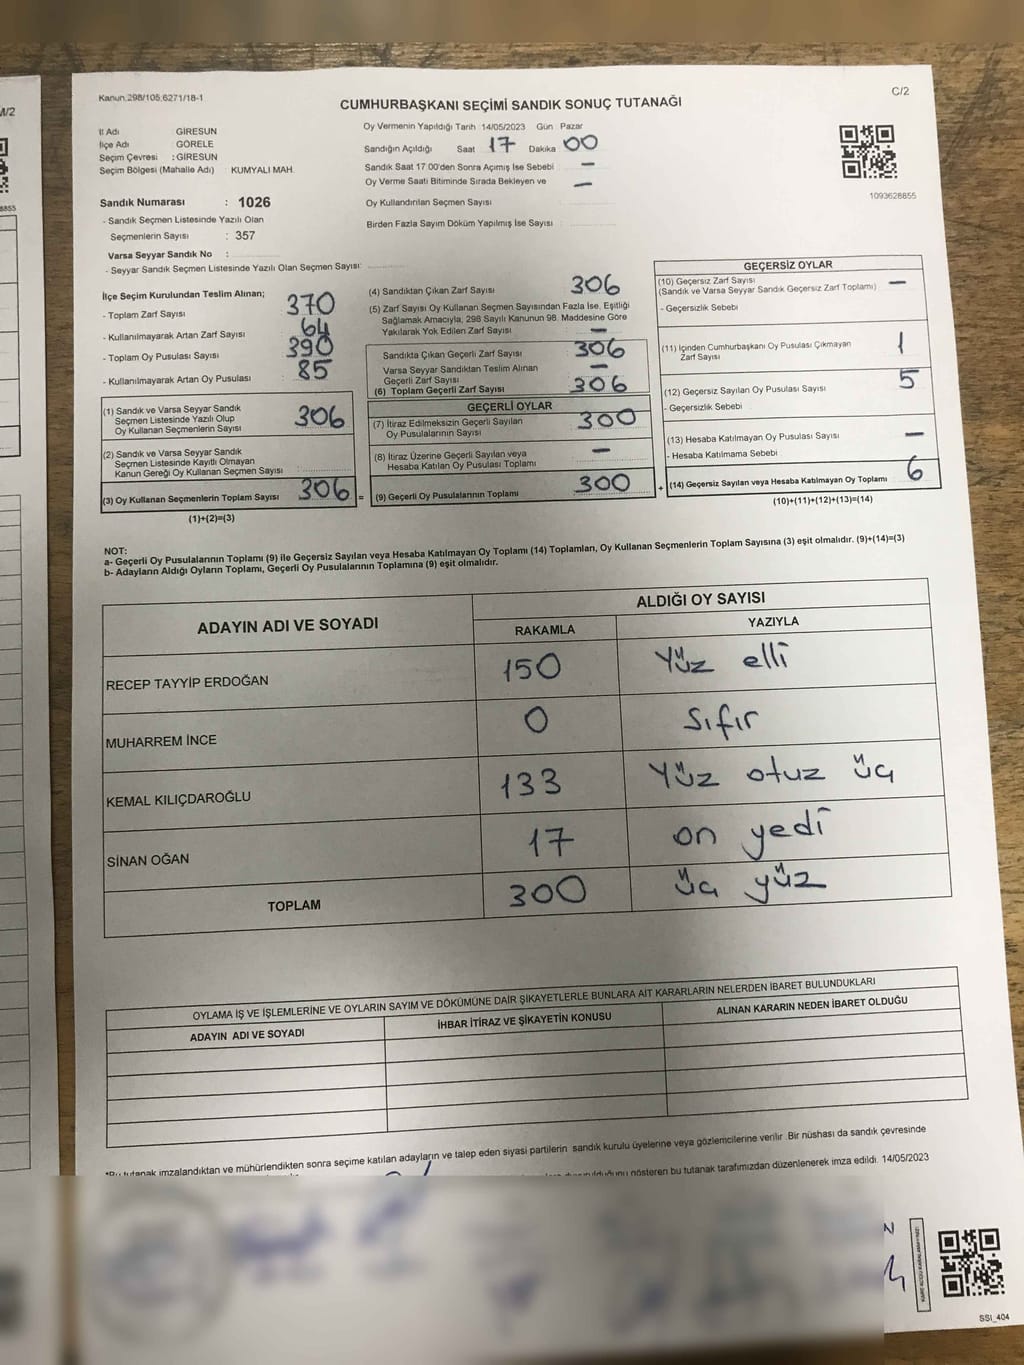 M/2
8855
Kanun.298/105,6271/18-1
C/2
CUMHURBAŞKANI SEÇİMİ SANDIK SONUÇ TUTANAĞI
İl Adı GİRESUN
İlçe Adı GÖRELE
Seçim Çevresi : GİRESUN
Seçim Bölgesi (Mahalle Adı) KUMYALI MAH.
Sandık Numarası : 1026
- Sandık Seçmen Listesinde Yazılı Olan
Seçmenlerin Sayısı : 357
Varsa Seyyar Sandık No :
- Seyyar Sandık Seçmen Listesinde Yazılı Olan Seçmen Sayısı:
Oy Vermenin Yapıldığı Tarih 14/05/2023 Gün Pazar
Sandığın Açıldığı Saat 17 Dakika 00
Sandık Saat 17.00'den Sonra Açımış İse Sebebi —
Oy Verme Saati Bitiminde Sırada Bekleyen ve —
Oy Kullandırılan Seçmen Sayısı
Birden Fazla Sayım Döküm Yapılmış İse Sayısı
1093628855
İlçe Seçim Kurulundan Teslim Alınan;
- Toplam Zarf Sayısı 370
- Kullanılmayarak Artan Zarf Sayısı 64
- Toplam Oy Pusulası Sayısı 390
- Kullanılmayarak Artan Oy Pusulası 85
(1) Sandık ve Varsa Seyyar Sandık
Seçmen Listesinde Yazılı Olup
Oy Kullanan Seçmenlerin Sayısı 306
(2) Sandık ve Varsa Seyyar Sandık
Seçmen Listesinde Kayıtlı Olmayan
Kanun Gereği Oy Kullanan Seçmen Sayısı
(3) Oy Kullanan Seçmenlerin Toplam Sayısı 306 =
(1)+(2)=(3)
(4) Sandıktan Çıkan Zarf Sayısı 306
(5) Zarf Sayısı Oy Kullanan Seçmen Sayısından Fazla İse, Eşitliği
Sağlamak Amacıyla, 298 Sayılı Kanunun 98. Maddesine Göre
Yakılarak Yok Edilen Zarf Sayısı —
Sandıkta Çıkan Geçerli Zarf Sayısı 306
Varsa Seyyar Sandıktan Teslim Alınan
Geçerli Zarf Sayısı —
(6) Toplam Geçerli Zarf Sayısı 306
GEÇERLİ OYLAR
(7) İtiraz Edilmeksizin Geçerli Sayılan
Oy Pusulalarının Sayısı 300
(8) İtiraz Üzerine Geçerli Sayılan veya
Hesaba Katılan Oy Pusulası Toplamı —
(9) Geçerli Oy Pusulalarının Toplamı 300 +
GEÇERSİZ OYLAR
(10) Geçersiz Zarf Sayısı
(Sandık ve Varsa Seyyar Sandık Geçersiz Zarf Toplamı) —
- Geçersizlik Sebebi
(11) İçinden Cumhurbaşkanı Oy Pusulası Çıkmayan
Zarf Sayısı 1
(12) Geçersiz Sayılan Oy Pusulası Sayısı 5
- Geçersizlik Sebebi
(13) Hesaba Katılmayan Oy Pusulası Sayısı —
- Hesaba Katılmama Sebebi
(14) Geçersiz Sayılan veya Hesaba Katılmayan Oy Toplamı 6
(10)+(11)+(12)+(13)=(14)
NOT:
a- Geçerli Oy Pusulalarının Toplamı (9) ile Geçersiz Sayılan veya Hesaba Katılmayan Oy Toplamı (14) Toplamları, Oy Kullanan Seçmenlerin Toplam Sayısına (3) eşit olmalıdır. (9)+(14)=(3)
b- Adayların Aldığı Oyların Toplamı, Geçerli Oy Pusulalarının Toplamına (9) eşit olmalıdır.
ADAYIN ADI VE SOYADI
ALDIĞI OY SAYISI
RAKAMLA YAZIYLA
RECEP TAYYİP ERDOĞAN 150 Yüz elli
MUHARREM İNCE 0 Sıfır
KEMAL KILIÇDAROĞLU 133 Yüz otuz üç
SİNAN OĞAN 17 on yedi
TOPLAM 300 üç yüz
OYLAMA İŞ VE İŞLEMLERİNE VE OYLARIN SAYIM VE DÖKÜMÜNE DAİR ŞİKAYETLERLE BUNLARA AİT KARARLARIN NELERDEN İBARET BULUNDUKLARI
ADAYIN ADI VE SOYADI İHBAR İTİRAZ VE ŞİKAYETİN KONUSU ALINAN KARARIN NEDEN İBARET OLDUĞU
*Bu tutanak imzalandıktan ve mühürlendikten sonra seçime katılan adayların ve talep eden siyasi partilerin sandık kurulu üyelerine veya gözlemcilerine verilir .Bir nüshası da sandık çevresinde
gösteren bu tutanak tarafımızdan düzenlenerek imza edildi. 14/05/2023
SSI_404